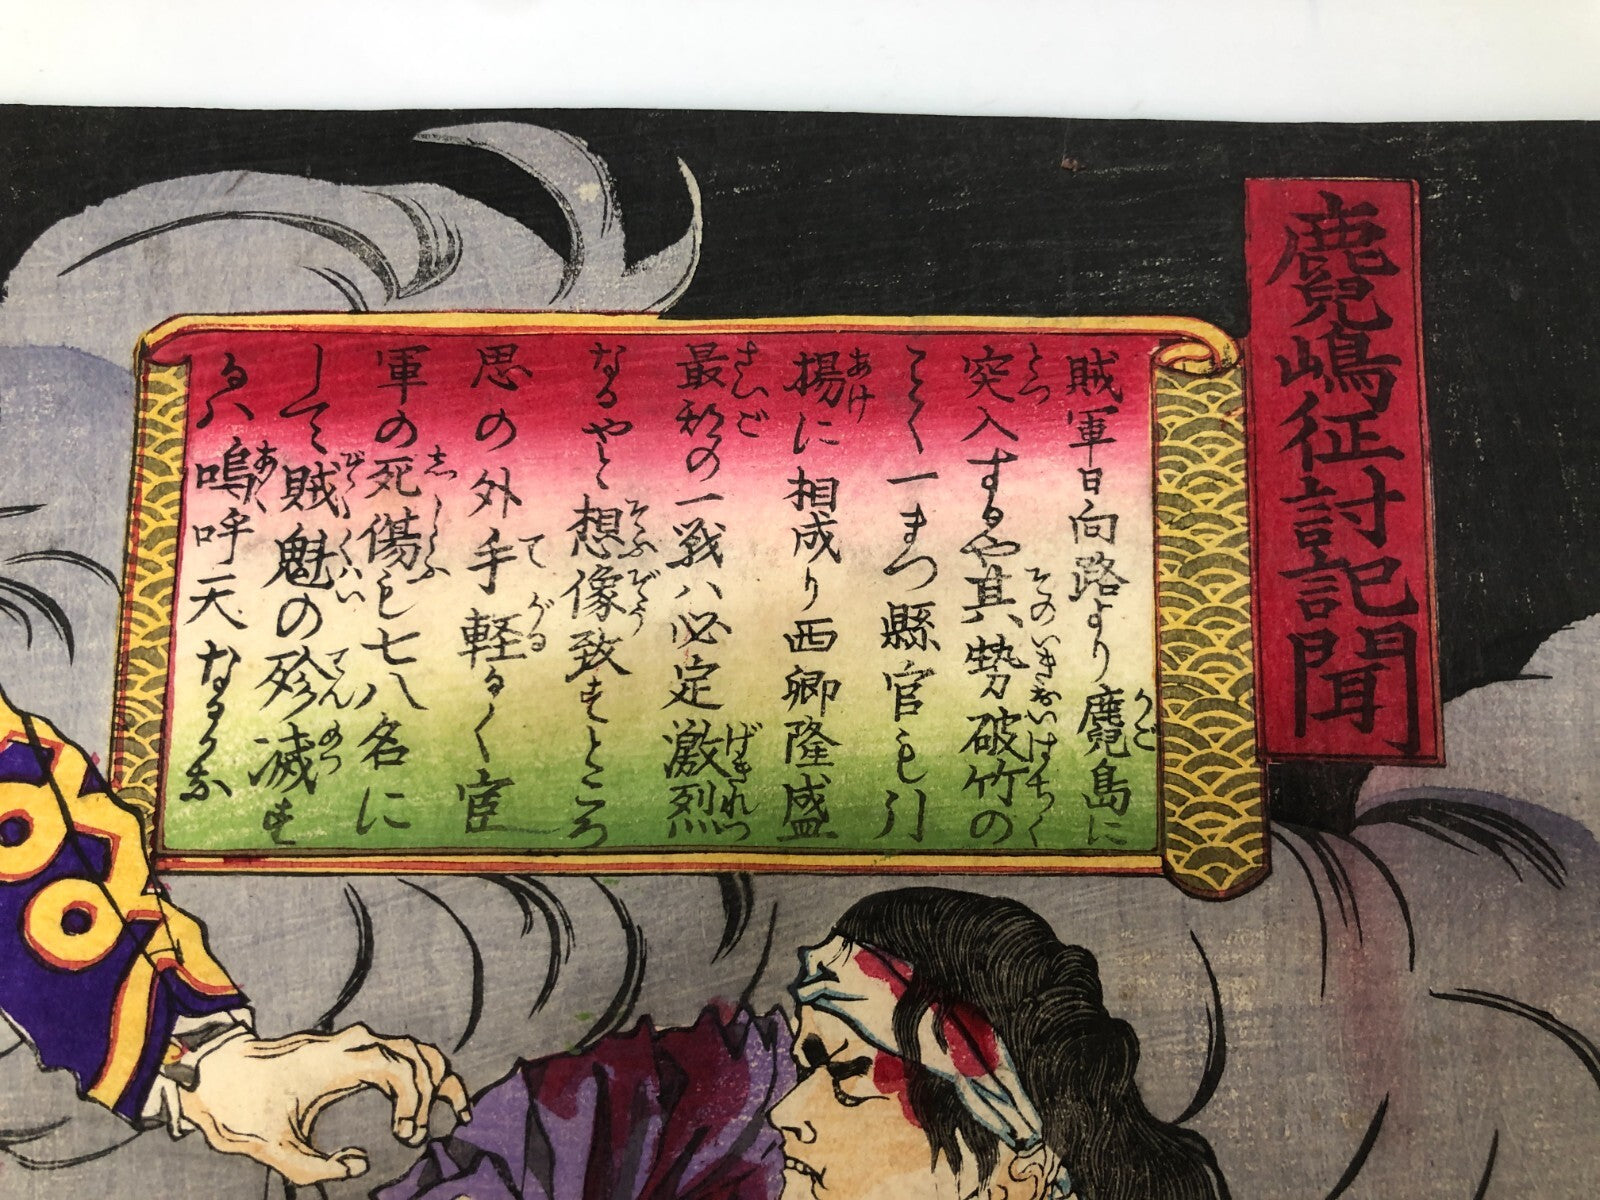 鹿児嶋征討記聞
賊軍日向路より鹿児島に
突入するや其勢破竹の
ごとく一まづ縣官も引
揚に相成り西郷隆盛
最初の一戦ハ必定激烈
なるやと想像致すところ
思の外手軽るく官
軍の死傷も七八名に
して賊魁の殄滅す
るハ嗚呼天なるかな